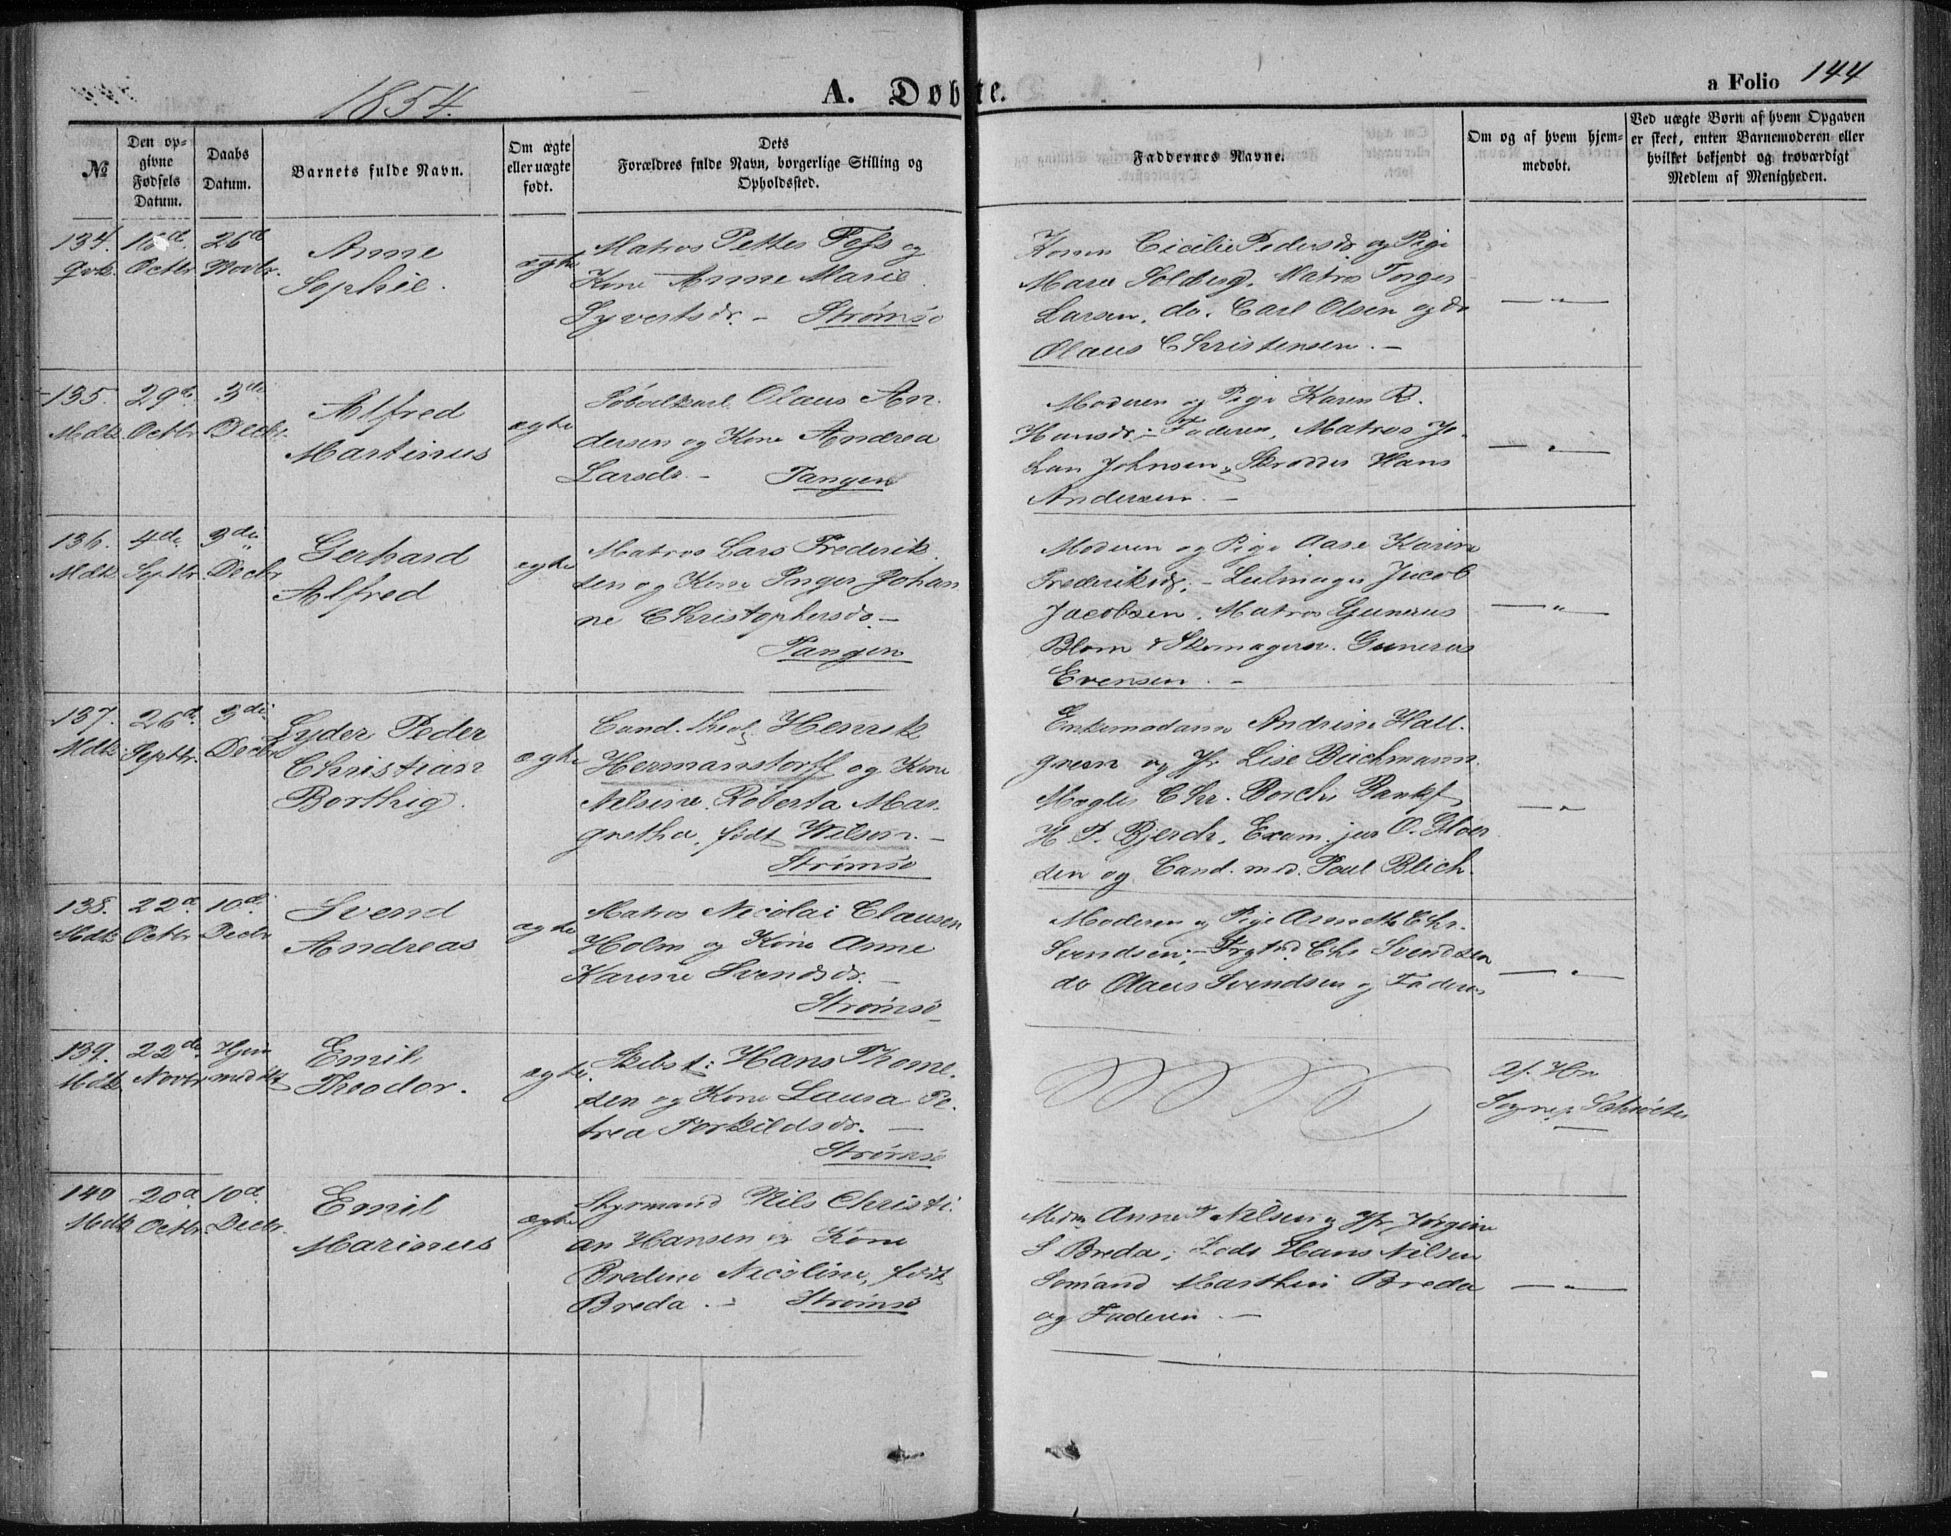 1854.
A. Døbte.
a Folio 144
№
Den op-
givne
Fødsels
Datum.
Daabs
Datum.
Barnets fulde Navn.
Om ægte
eller uægte
født.
Dets
Forældres fulde Navn, borgerlige Stilling og
Opholdssted.
Faddernes Navne.
Om og af hvem hjem-
medøbt.
Ved uægte Børn af hvem Opgaven
er skeet, enten Barnemoderen eller
hvilket bekjendt og troværdigt
Medlem af Menigheden.
134.
Octbr
26d
Novbr.
Anne
Sophie.
ægte
Matros Petter Foss og
Kone Anne Marie
Syvertsdr. - Strømsø
Konen Cicilie Pedersdr og Pige
Maren Solberg, Matros Torger
Larsen, do. Carl Olsen og do
Olaus Christensen. -
— " —
135.
Mdk.
29d.
Octbr
3die
Decbr.
Alfred
Martinus
ægte
Olaus An-
dersen og Kone Andrea
Larsdr. - Tangen
Moderen og Pige Karen R.
Hansdr; - Faderen, Matros Jo-
han Johnsen, Skrædder Hans
Andersen. -
— " —
136.
Mdk
4de
Septbr.
3die
Decbr
Gerhard
Alfred
ægte
Matros Lars Frederik-
sen og Kone Inger Johan-
ne Christophersdr. -
Tangen
Moderen og Pige Aase Karine
Frederiksdr; - Jacob
Jacobsen, Matros Gunerus
Blom & Skomagersv. Gunerus
Evensen. -
— " —
137.
Mdk
26d.
Septbr.
3die
Decbr
Lyder Peder
Christian
Borthig.
ægte
Cand. theol. Henrik
Hermanstorff og Kone
Nilsine Roberta Mar-
gretha, født Wilson. -
Strømsø
Enkemadame Andrine Hall-
green og Jfr Lise Bichmann
Mægler Chr. Borch,
H. P. Bjerch, Exam. jur O.
sen og Cand. med. Poul Blich.
— " —
138.
Mdk
22d.
Octbr
10d.
Decbr
Svend
Andreas
ægte
Matros Nicolai Clausen
Holm og Kone Anne
Karine Svendsdr. -
Strømsø
Moderen og Pige Chr.
Svendsen; - Chr Svendsen
do Olaus Svendsen og Faderen
— " —
139.
Mdk
22de
Novbr
Emil
Theodor.
ægte.
Skibst: Hans Thom-
sen og Kone Laura Pe-
trea Torkildsdr. -
Strømsø
af Hr
Sognep. Schröeter
140
Mdk
20d
Octbr.
10d.
Decbr.
Emil
Marinus
ægte
Styrmand Nils Christi-
an Hansen og Kone
Bredine Nicoline, født
Breda. - Strømsø
Mdm Anne Nilsen og Jfr Jørgine
S Breda; Lods Hans Nilsen
Sømand Marthin Breda
og Faderen. -
— " —